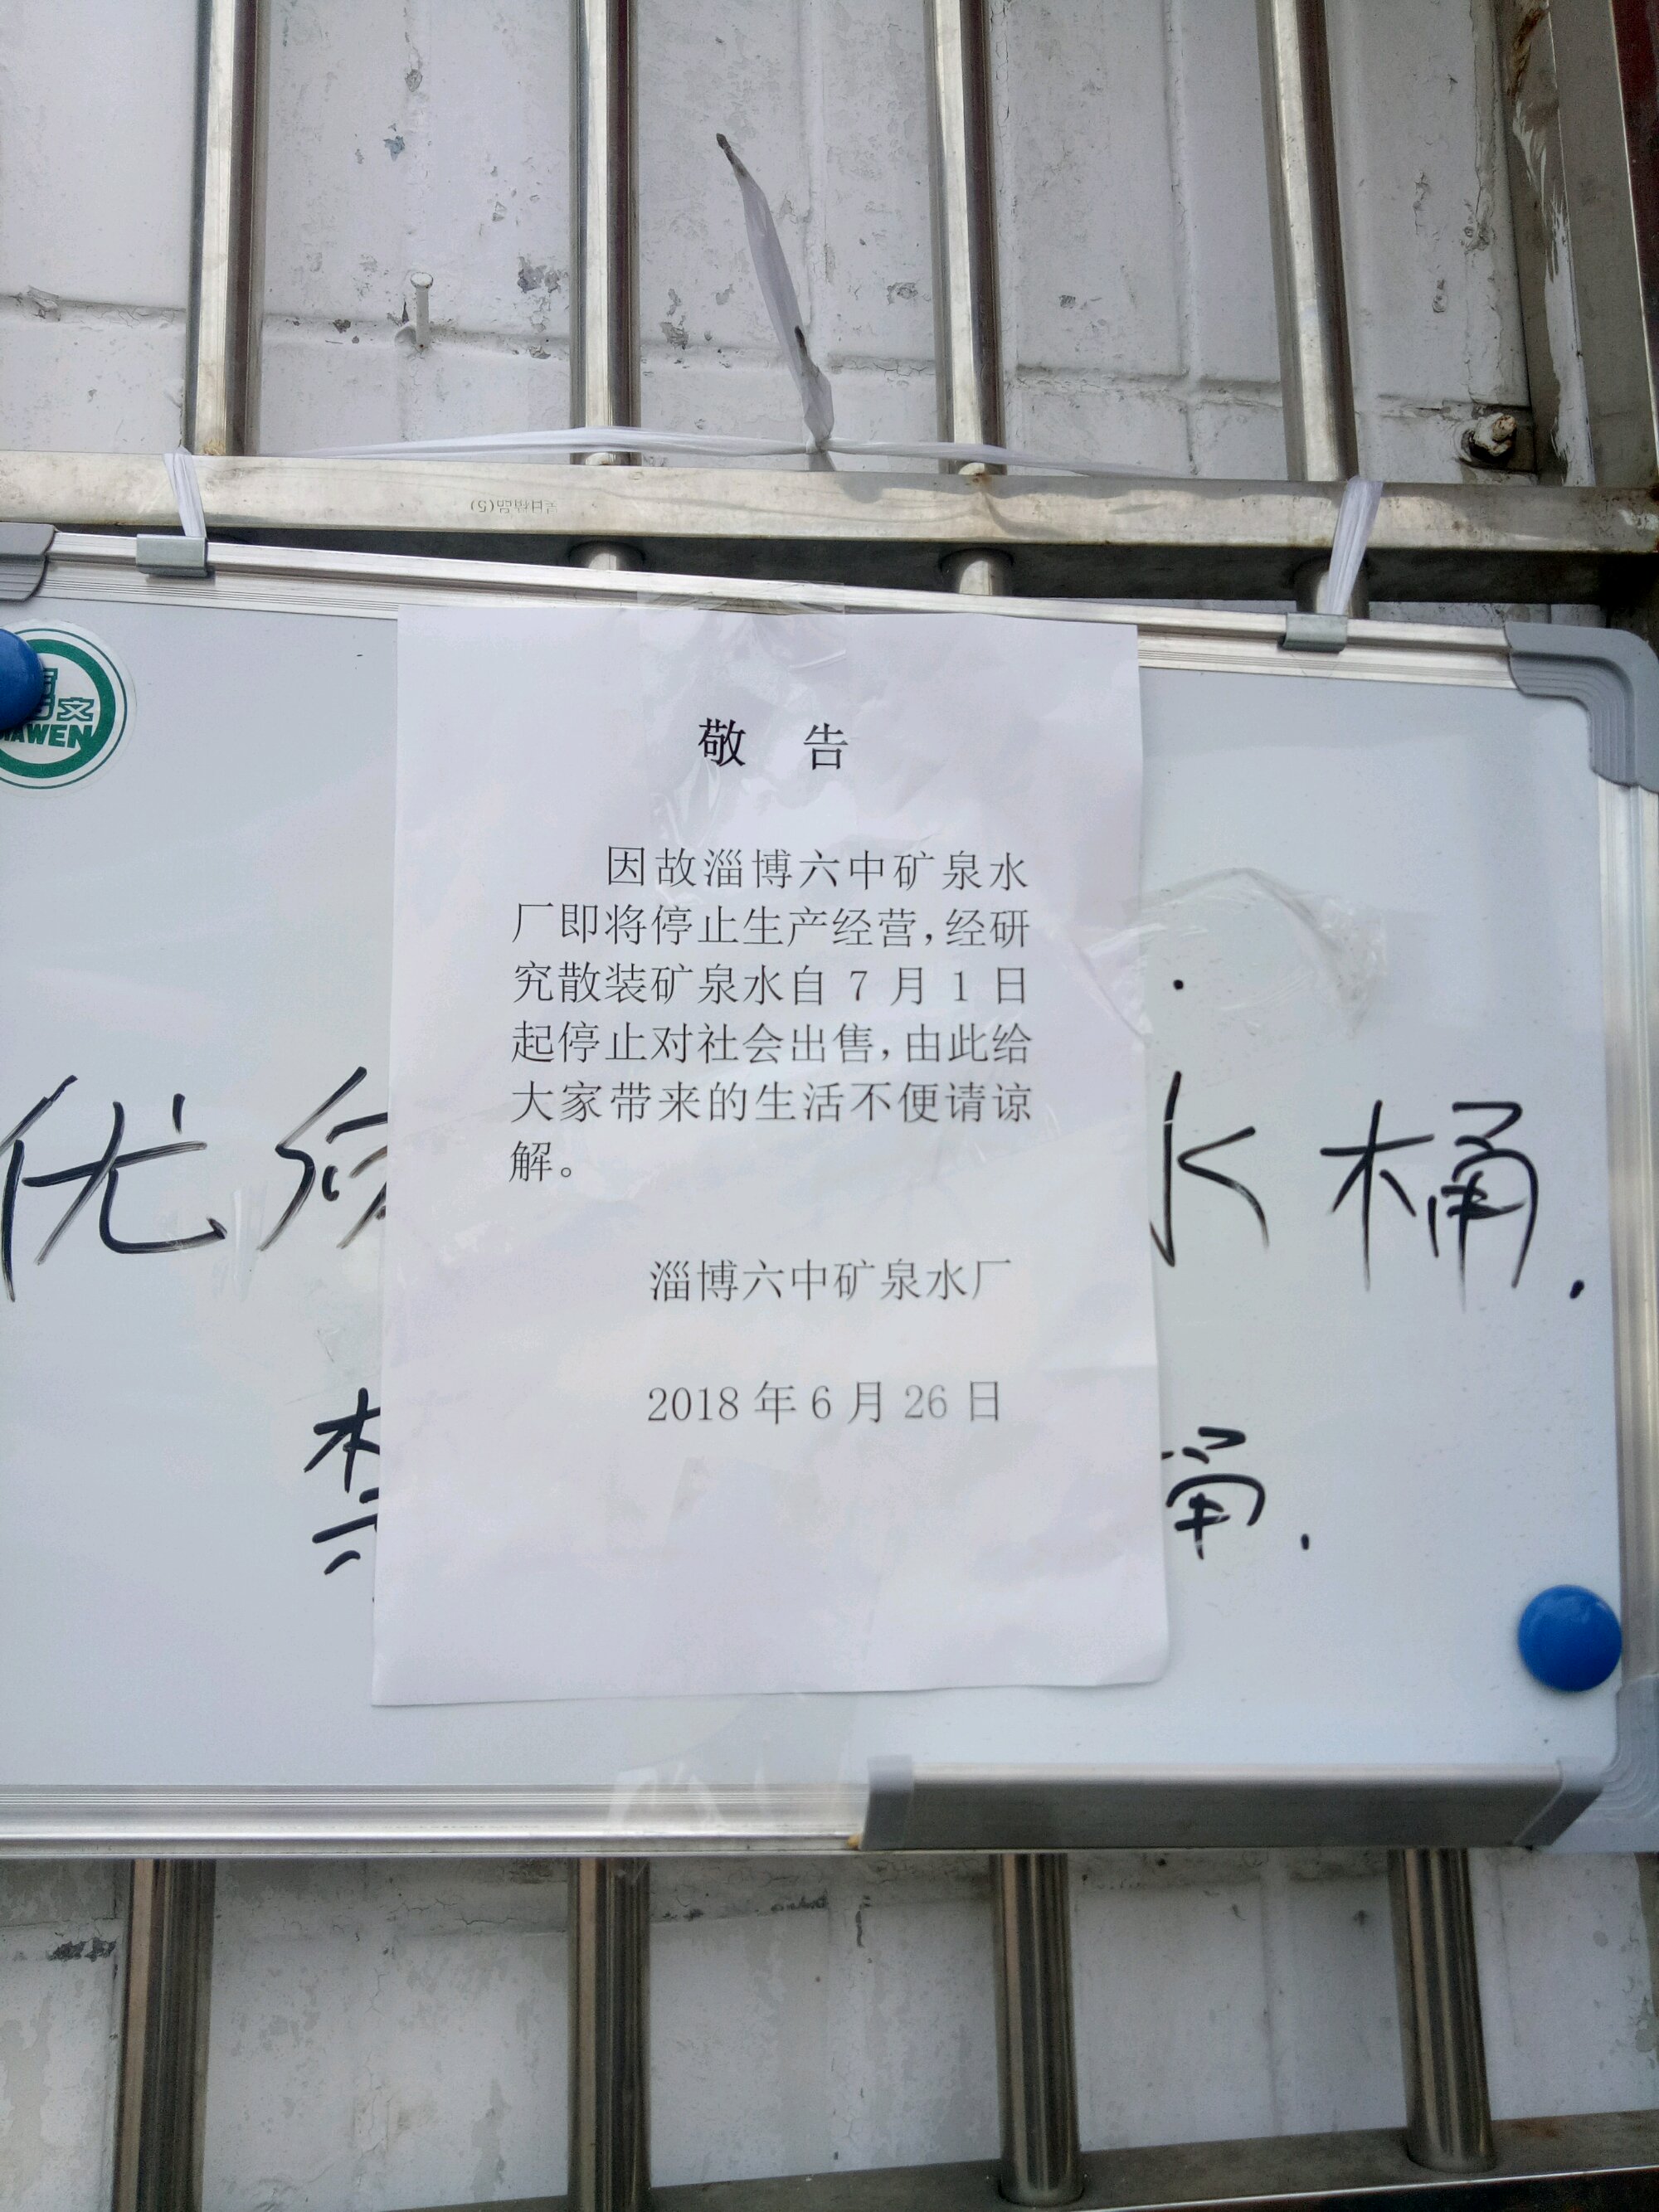 文
WEN
敬 告
因故淄博六中矿泉水
厂即将停止生产经营，经研
究散装矿泉水自 7 月 1 日
起停止对社会出售，由此给
大家带来的生活不便请谅
解。
淄博六中矿泉水厂
2018 年 6 月 26 日
优 水桶.
禁 桶.